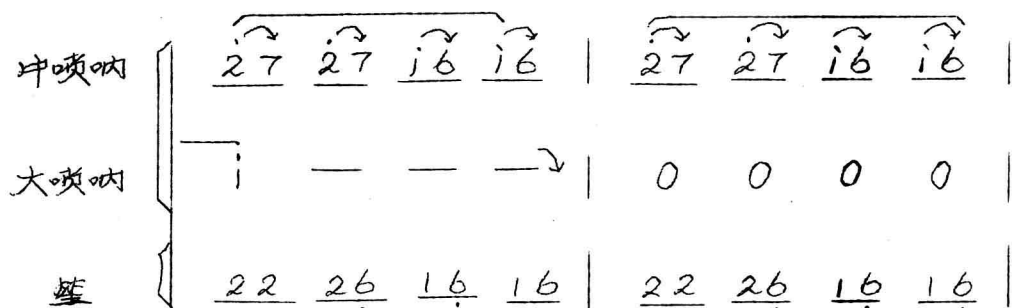 中唢呐 2̇7 2̇7 1̇6 1̇6 | 2̇7 2̇7 1̇6 1̇6 |
大唢呐 1̇ — — — | 0 0 0 0 |
笙 22 26̣ 16̣ 16̣ | 22 26̣ 16̣ 16̣ |